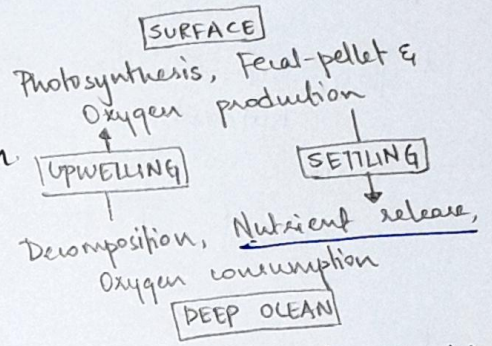 SURFACE
Photosynthesis, Fecal-pellet &
Oxygen production
UPWELLING
SETTLING
Decomposition, Nutrient release,
Oxygen consumption
DEEP OCEAN